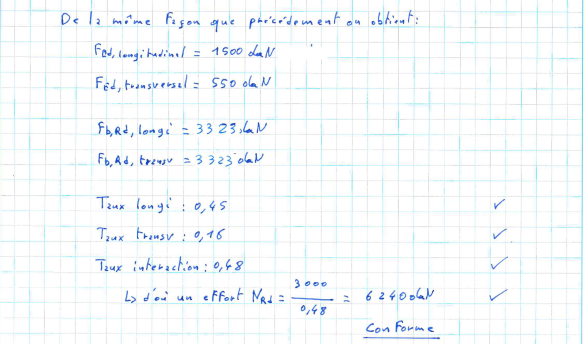 De la même façon que précédement on obtient :
FEd, longitudinal = 1500 daN
FEd, transversal = 550 daN
Fb,Rd, longi = 3323 daN
Fb,Rd, transv = 3323 daN
Taux longi : 0,45 ✓
Taux transv : 0,16 ✓
Taux interaction : 0,48 ✓
↳ d'où un effort NRd = 3000 / 0,48 = 6240 daN ✓
Conforme